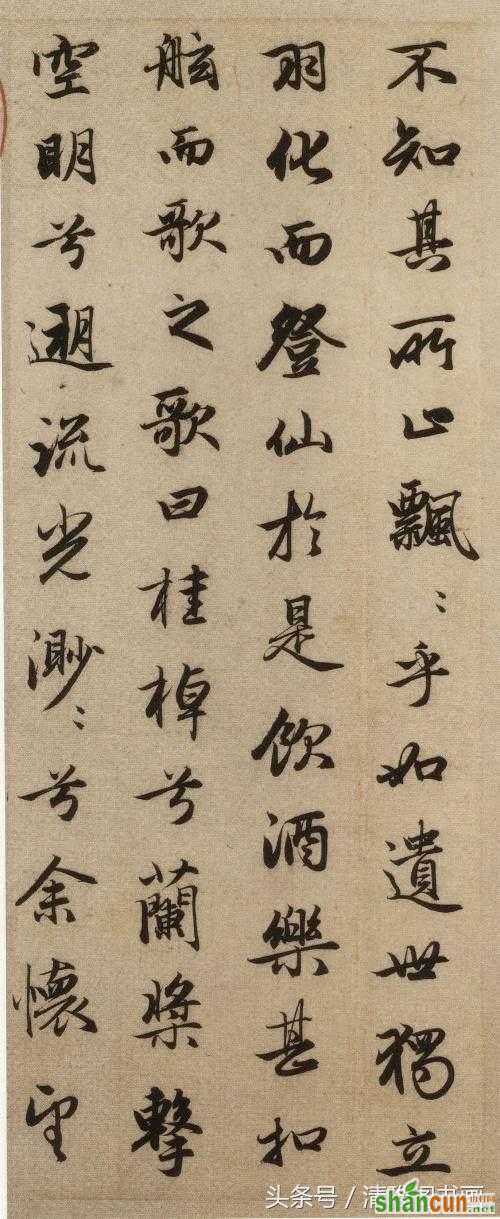 不知其所止飄〻乎如遺世獨立
羽化而登仙於是飲酒樂甚扣
舷而歌之歌曰桂棹兮蘭槳擊
空明兮遡流光渺〻兮余懷望
头条号／清书画
shancun